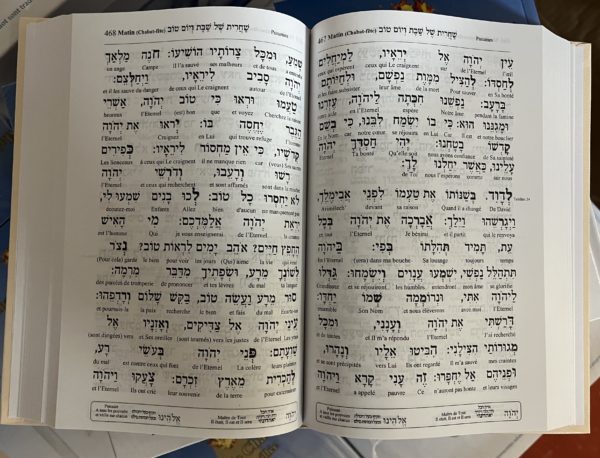 467 Matin (Chabat-fête) שַׁחֲרִית שֶׁל שַׁבָּת וְיוֹם טוֹב Psaumes
עֵין יְהֹוָה אֶל יְרֵאָיו, לַמְיַחֲלִים
לְחַסְדּוֹ: לְהַצִּיל מִמָּוֶת נַפְשָׁם, וּלְחַיּוֹתָם
et les faire subsister leur âme de la mort Pour sauver
בָּרָעָב: נַפְשֵׁנוּ חִכְּתָה לַיהֹוָה, עֶזְרֵנוּ
en l'Eternel espère Notre âme pendant la famine
וּמָגִנֵּנוּ הוּא: כִּי בוֹ יִשְׂמַח לִבֵּנוּ, כִּי בְשֵׁם
car notre cœur se réjouira en Lui Car Il est et notre bouclier
קָדְשׁוֹ בָטָחְנוּ: יְהִי חַסְדְּךָ יְהֹוָה
l'Eternel Ta bonté Qu'elle soit nous avons confiance de Sa sainteté
עָלֵינוּ, כַּאֲשֶׁר יִחַלְנוּ לָךְ:
de Toi nous l'espérons comme sur nous
לְדָוִד בְּשַׁנּוֹתוֹ אֶת טַעְמוֹ לִפְנֵי אֲבִימֶלֶךְ,
Avimélech devant sa raison Quand il a changé De David
וַיְגָרְשֵׁהוּ וַיֵּלַךְ: אֲבָרְכָה אֶת יְהֹוָה בְּכָל
en tout l'Eternel Je bénirai et il partit qui le renvoya
עֵת, תָּמִיד תְּהִלָּתוֹ בְּפִי: בַּיהֹוָה
En l'Eternel (sera) dans ma bouche Sa louange toujours temps
תִּתְהַלֵּל נַפְשִׁי, יִשְׁמְעוּ עֲנָוִים וְיִשְׂמָחוּ: גַּדְּלוּ
Grandissez et se réjouissent les humbles entendront mon âme se glorifie
לַיהֹוָה אִתִּי, וּנְרוֹמְמָה שְׁמוֹ יַחְדָּו:
ensemble Son Nom et nous élèverons avec moi l'Eternel
דָּרַשְׁתִּי אֶת יְהֹוָה וְעָנָנִי, וּמִכָּל
et de toutes et Il m'a répondu l'Eternel
מְגוּרוֹתַי הִצִּילָנִי: הִבִּיטוּ אֵלָיו וְנָהָרוּ,
et se sont précipités vers Lui Ils ont regardé Il m'a sauvé mes craintes
וּפְנֵיהֶם אַל יֶחְפָּרוּ: זֶה עָנִי קָרָא וַיהֹוָה
et l'Eternel a appelé pauvre Ce n'auront pas honte et leurs visages
Maître de Tout
Il était, Il est et Il sera
468 Matin (Chabat-fête) שַׁחֲרִית שֶׁל שַׁבָּת וְיוֹם טוֹב Psaumes
שָׁמֵעַ, וּמִכָּל צָרוֹתָיו הוֹשִׁיעוֹ: חֹנֶה מַלְאַךְ
un ange Campe Il l'a sauvé ses malheurs et de tous a entendu
יְהֹוָה סָבִיב לִירֵאָיו, וַיְחַלְּצֵם:
et il les sauve du danger de ceux qui Le craignent autour de l'Eternel
טַעֲמוּ וּרְאוּ כִּי טוֹב יְהֹוָה, אַשְׁרֵי
heureux l'Eternel (est) bon que et voyez
הַגֶּבֶר יֶחֱסֶה בּוֹ: יְראוּ אֶת יְהֹוָה
l'Eternel Craignez en Lui qui trouve refuge l'homme
קְדֹשָׁיו, כִּי אֵין מַחְסוֹר לִירֵאָיו: כְּפִירִים
Les lionceaux à ceux qui Le craignent il ne manque rien car (vous) Ses saints
רָשׁוּ וְרָעֵבוּ, וְדֹרְשֵׁי יְהֹוָה
l'Eternel et ceux qui recherchent et sont affamés
לֹא יַחְסְרוּ כָל טוֹב: לְכוּ בָנִים שִׁמְעוּ לִי,
écoutez-moi Enfants Allez bien d'aucun ne manquent pas
יִרְאַת יְהֹוָה אֲלַמֶּדְכֶם: מִי הָאִישׁ
est l'homme Qui je vous enseignerai de l'Eternel la crainte
הֶחָפֵץ חַיִּים? אֹהֵב יָמִים לִרְאוֹת טוֹב? נְצֹר
(Pour cela) garde le bien pour voir les jours (Qui) aime la vie qui veut
לְשׁוֹנְךָ מֵרָע, וּשְׂפָתֶיךָ מִדַּבֵּר מִרְמָה:
des paroles de tromperie de prononcer et tes lèvres du mal ta langue
סוּר מֵרָע וַעֲשֵׂה טוֹב, בַּקֵּשׁ שָׁלוֹם וְרָדְפֵהוּ:
et poursuis-la la paix recherche le bien et fais du mal Ecarte-toi
עֵינֵי יְהֹוָה אֶל צַדִּיקִים, וְאָזְנָיו אֶל
(sont dirigées) vers et Ses oreilles (sont tournés) vers les justes de l'Eternel Les yeux
שַׁוְעָתָם: פְּנֵי יְהֹוָה בְּעֹשֵׂי רָע,
du mal est contre ceux qui font de l'Eternel La colère leurs plaintes
לְהַכְרִית מֵאֶרֶץ זִכְרָם: צָעֲקוּ וַיהֹוָה
et l'Eternel Ils ont crié leur souvenir de la terre pour exterminer
Maître de Tout
Il était, Il est et Il sera